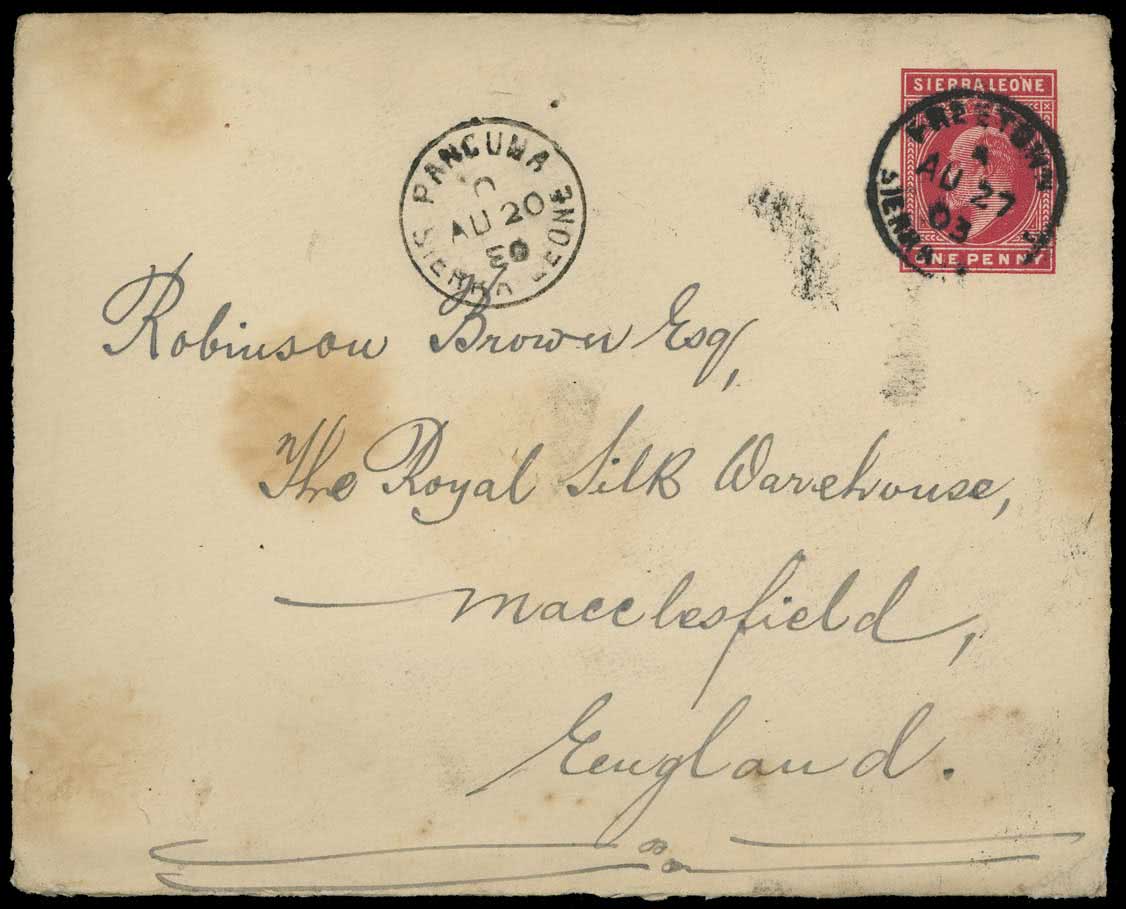 SIERRA LEONE
FREETOWN
AU 27
03
SIERRA
ONE PENNY
PANGUMA
C
AU 20
03
SIERRA LEONE
Robinson Brown Esq,
The Royal Silk Warehouse,
Macclesfield,
England.